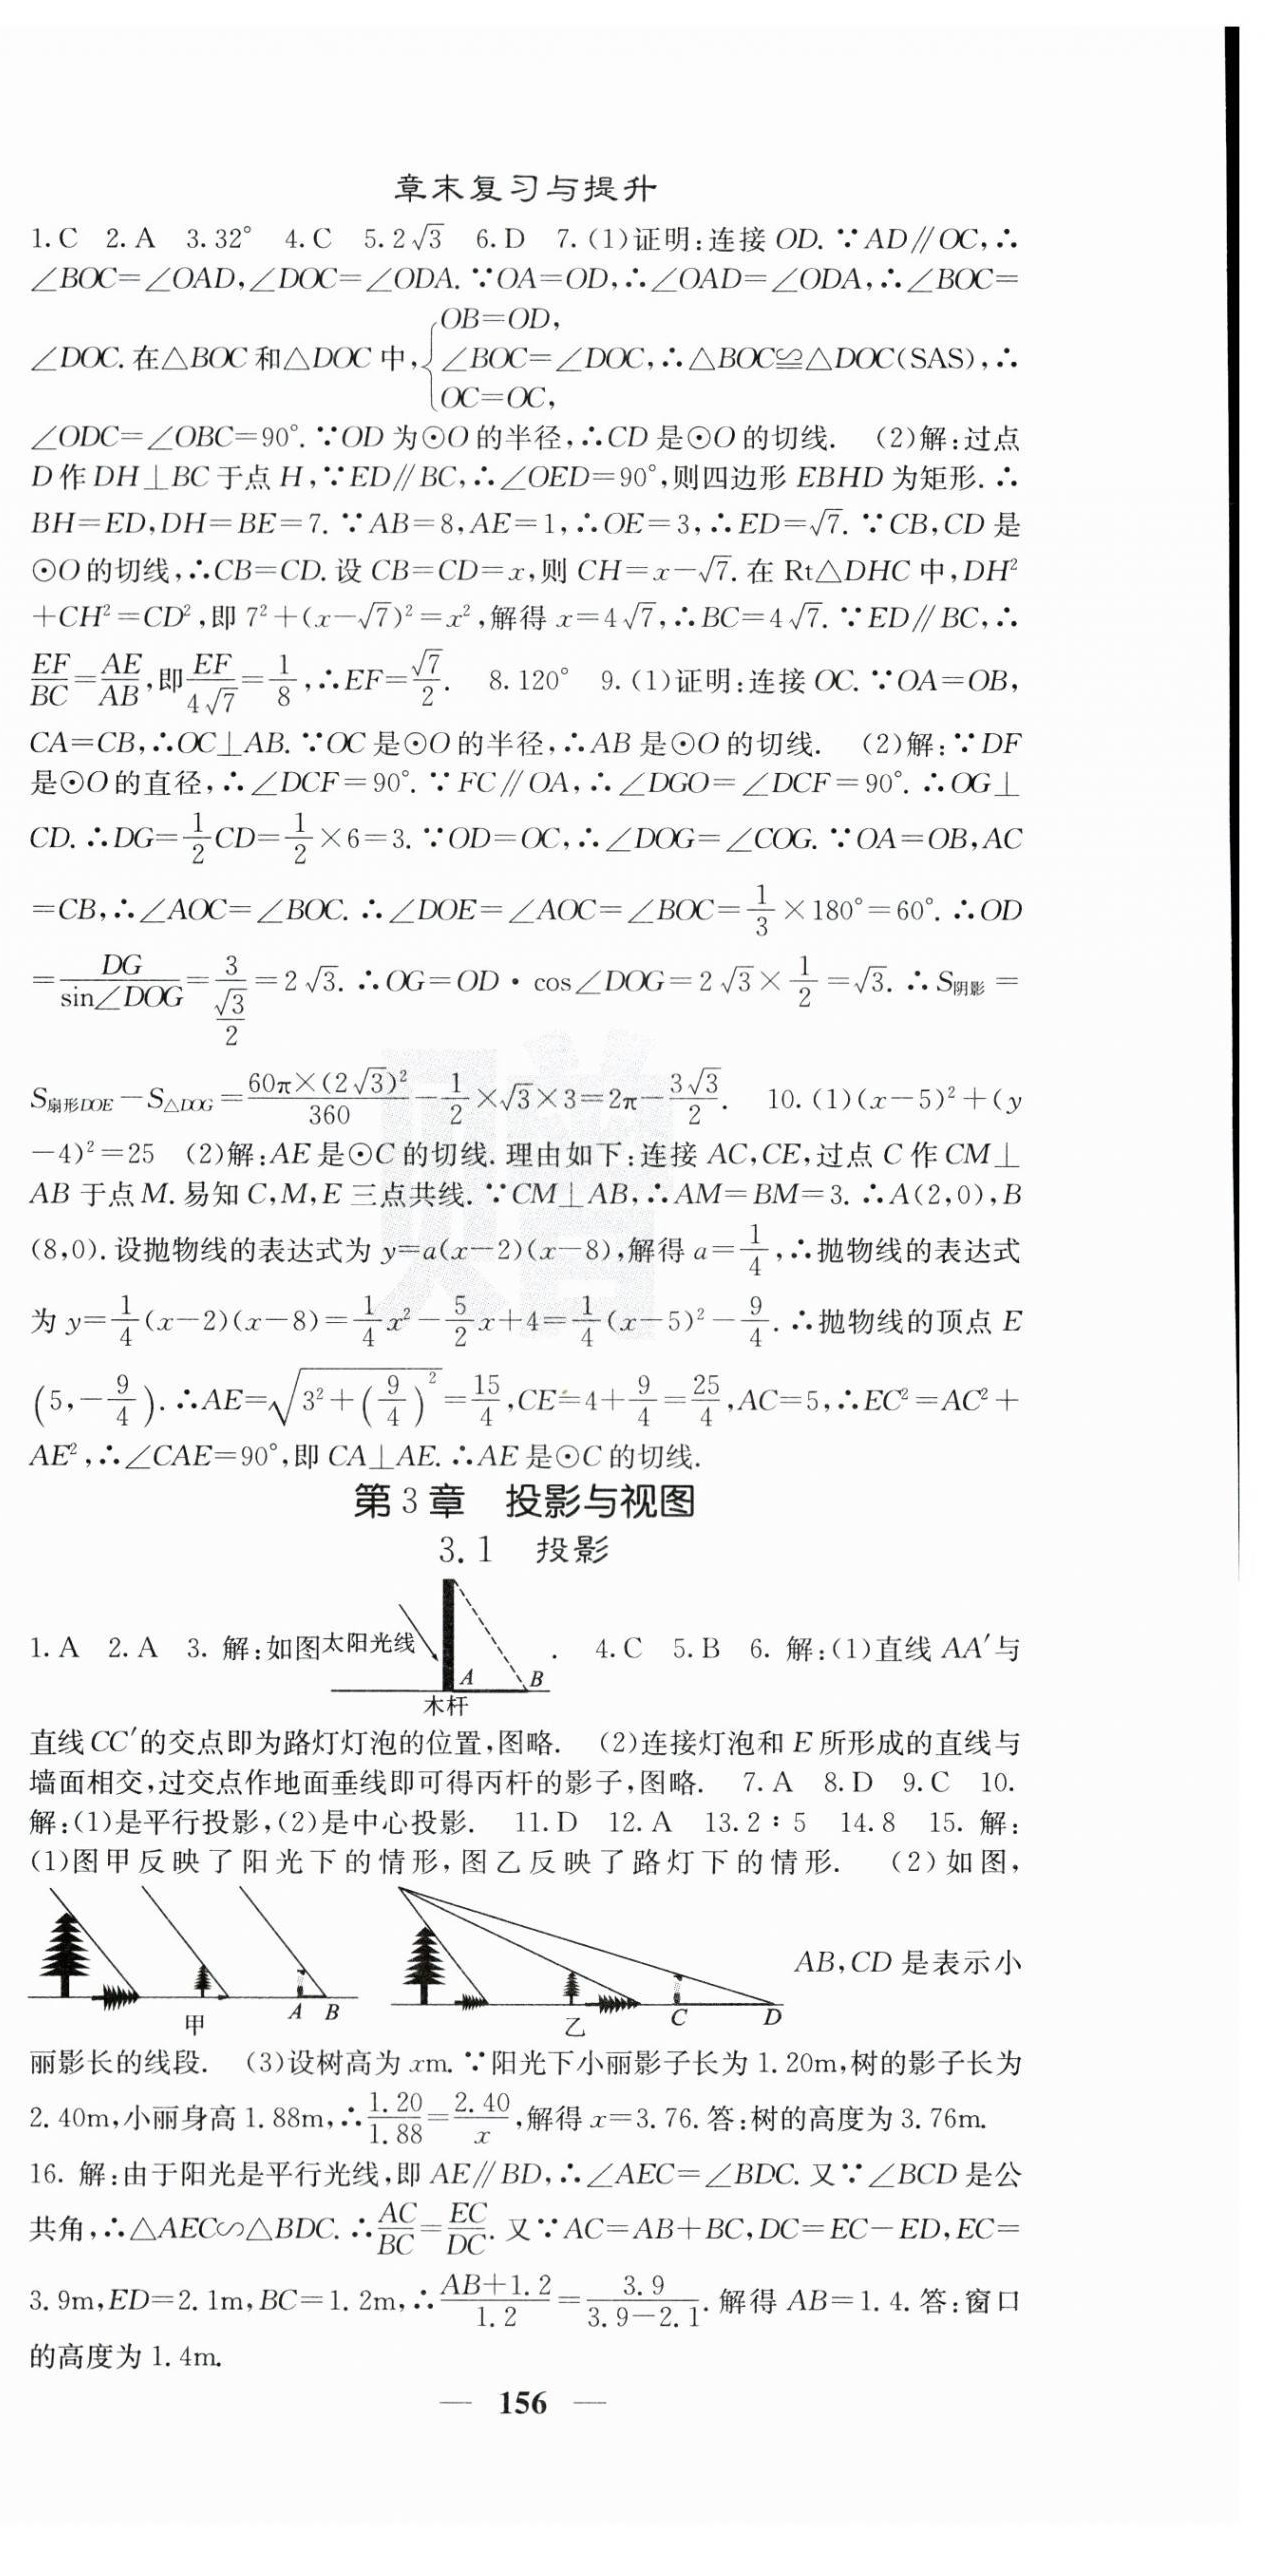 章末复习与提升
1.C 2.A 3.32° 4.C 5.2√3 6.D 7.(1)证明:连接 OD.∵AD∥OC,∴
∠BOC=∠OAD,∠DOC=∠ODA.∵OA=OD,∴∠OAD=∠ODA,∴∠BOC=
∠DOC.在△BOC和△DOC中,{OB=OD, ∠BOC=∠DOC, OC=OC, ∴△BOC≌△DOC(SAS),∴
∠ODC=∠OBC=90°.∵OD为⊙O的半径,∴CD是⊙O的切线. (2)解:过点
D作DH⊥BC于点H,∵ED∥BC,∴∠OED=90°,则四边形EBHD为矩形.∴
BH=ED,DH=BE=7.∵AB=8,AE=1,∴OE=3,∴ED=√7.∵CB,CD是
⊙O的切线,∴CB=CD.设CB=CD=x,则CH=x-√7.在Rt△DHC中,DH²
+CH²=CD²,即7²+(x-√7)²=x²,解得x=4√7,∴BC=4√7.∵ED∥BC,∴
EF/BC=AE/AB,即EF/4√7=1/8,∴EF=√7/2. 8.120° 9.(1)证明:连接OC.∵OA=OB,
CA=CB,∴OC⊥AB.∵OC是⊙O的半径,∴AB是⊙O的切线. (2)解:∵DF
是⊙O的直径,∴∠DCF=90°.∵FC∥OA,∴∠DGO=∠DCF=90°.∴OG⊥
CD.∴DG=1/2CD=1/2×6=3.∵OD=OC,∴∠DOG=∠COG.∵OA=OB,AC
=CB,∴∠AOC=∠BOC.∴∠DOE=∠AOC=∠BOC=1/3×180°=60°.∴OD
=DG/sin∠DOG=3/(√3/2)=2√3.∴OG=OD·cos∠DOG=2√3×1/2=√3.∴S阴影=
S扇形DOE-S△DOG=60π×(2√3)²/360-1/2×√3×3=2π-3√3/2. 10.(1)(x-5)²+(y
-4)²=25 (2)解:AE是⊙C的切线.理由如下:连接AC,CE,过点C作CM⊥
AB于点M.易知C,M,E三点共线.∵CM⊥AB,∴AM=BM=3.∴A(2,0),B
(8,0).设抛物线的表达式为y=a(x-2)(x-8),解得a=1/4,∴抛物线的表达式
为y=1/4(x-2)(x-8)=1/4x²-5/2x+4=1/4(x-5)²-9/4.∴抛物线的顶点E
(5,-9/4).∴AE=√(3²+(9/4)²)=15/4,CE=4+9/4=25/4,AC=5,∴EC²=AC²+
AE²,∴∠CAE=90°,即CA⊥AE.∴AE是⊙C的切线.
第3章 投影与视图
3.1 投影
1.A 2.A 3.解:如图太阳光线 A B 木杆 . 4.C 5.B 6.解:(1)直线AA′与
直线CC′的交点即为路灯灯泡的位置,图略. (2)连接灯泡和E所形成的直线与
墙面相交,过交点作地面垂线即可得丙杆的影子,图略. 7.A 8.D 9.C 10.
解:(1)是平行投影,(2)是中心投影. 11.D 12.A 13.2∶5 14.8 15.解:
(1)图甲反映了阳光下的情形,图乙反映了路灯下的情形. (2)如图,
甲 A B 乙 C D AB,CD是表示小
丽影长的线段. (3)设树高为xm.∵阳光下小丽影子长为1.20m,树的影子长为
2.40m,小丽身高1.88m,∴1.20/1.88=2.40/x,解得x=3.76.答:树的高度为3.76m.
16.解:由于阳光是平行光线,即AE∥BD,∴∠AEC=∠BDC.又∵∠BCD是公
共角,∴△AEC∽△BDC.∴AC/BC=EC/DC.又∵AC=AB+BC,DC=EC-ED,EC=
3.9m,ED=2.1m,BC=1.2m,∴(AB+1.2)/1.2=3.9/(3.9-2.1).解得AB=1.4.答:窗口
的高度为1.4m.
— 156 —